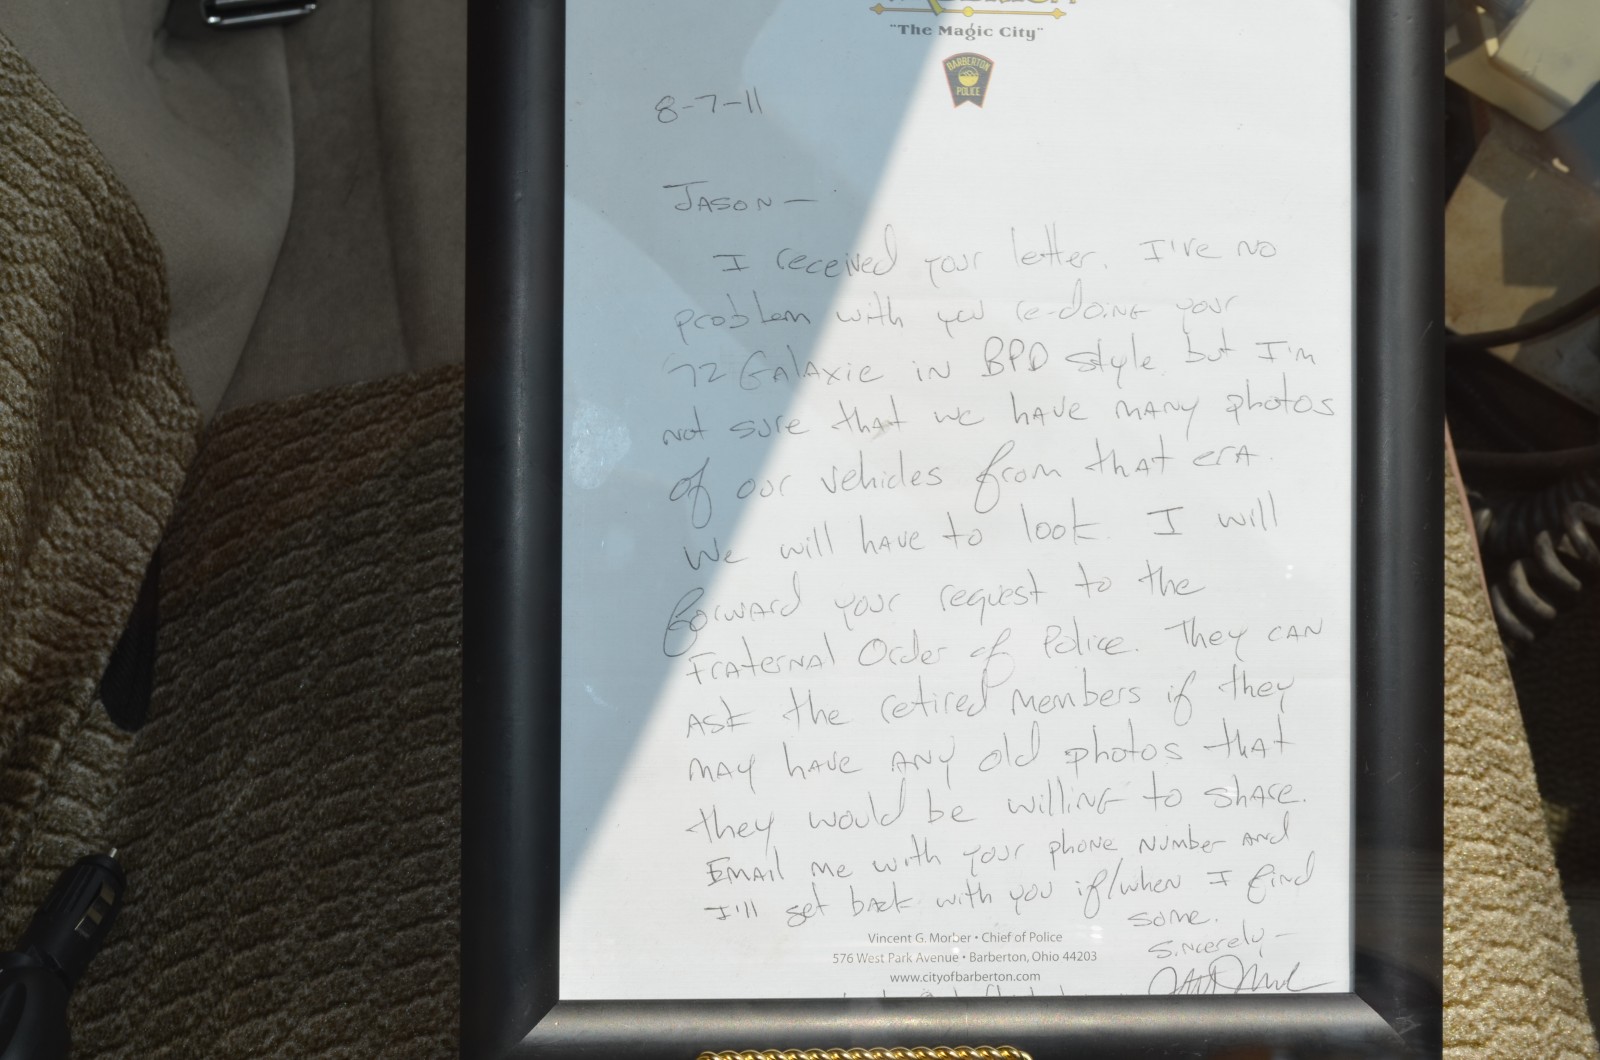 "The Magic City"
BARBERTON
POLICE
8-7-11
JASON —
I received your letter. I've no
problem with you re-doing your
'72 Galaxie in BPD style, but I'm
not sure that we have many photos
of our vehicles from that era.
We will have to look. I will
forward your request to the
Fraternal Order of Police. They can
ask the retired members if they
may have any old photos that
they would be willing to share.
Email me with your phone number and
I'll get back with you if/when I find
some.
Sincerely —
Vincent G. Morber • Chief of Police
576 West Park Avenue • Barberton, Ohio 44203
www.cityofbarberton.com